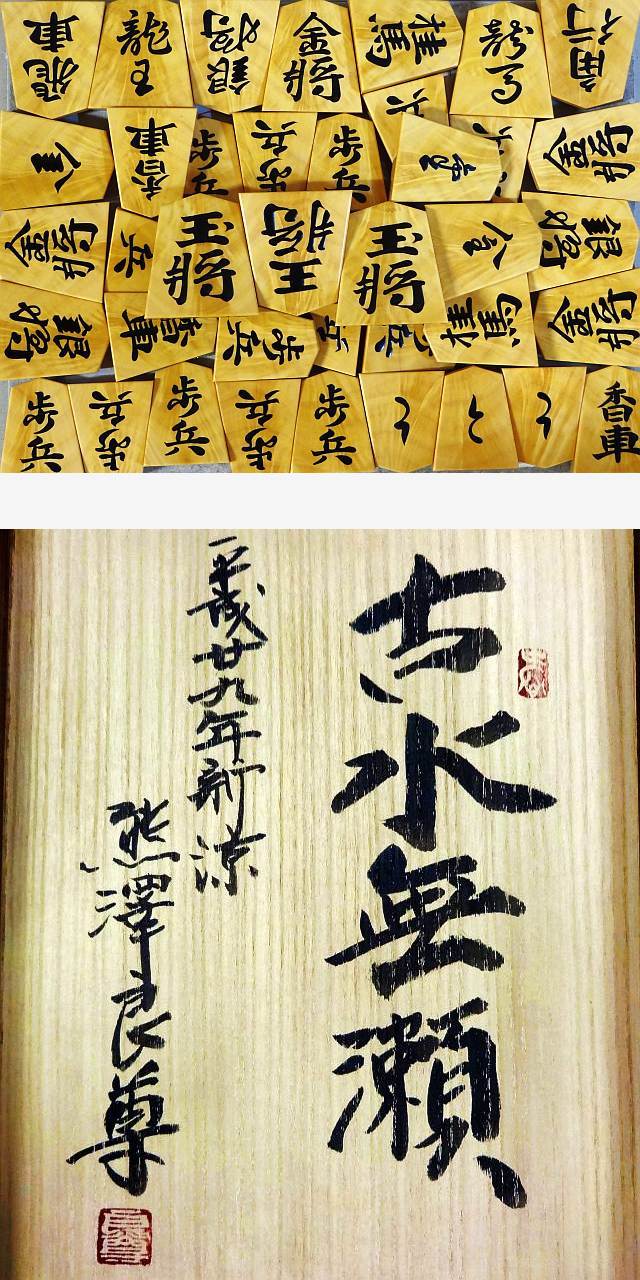 飛車
龍王
銀将
金将
桂馬
龍馬
角行
金
香車
歩兵
歩兵
歩兵
兵
金将
金将
兵
玉将
王将
玉将
銀将
銀将
香車
歩兵
兵
桂馬
金将
歩兵
歩兵
歩兵
歩兵
歩兵
と
と
と
香車
古水無瀬
平成廿九年新涼
熊澤良尊